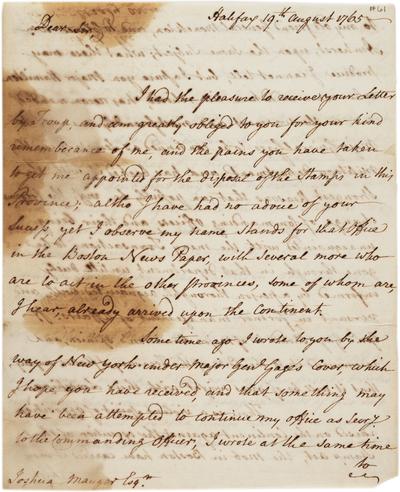 #61
Halifax 19.th August 1765
Dear Sir,
I had the pleasure to receive your Letter
by Troup, and am greatly obliged to you for your kind
rememberance of me, and the pains you have taken
to get me appointed for the disposal of the Stamps in this
Province; altho I have had no advice of your
Success, yet I observe my name Stands for that Office
in the Boston News Paper, with Several more who
are to act in the other Provinces, some of whom are,
I hear, already arrived upon the Continent.
Some time ago I wrote to you by the
way of New York under Major Gen.l Gage's Cover, which
I hope you have received and that something may
have been attempted to continue my office as Secr.y
to the Commanding Officer, I wrote at the Same time
to
Joshua Maugar Esq.r